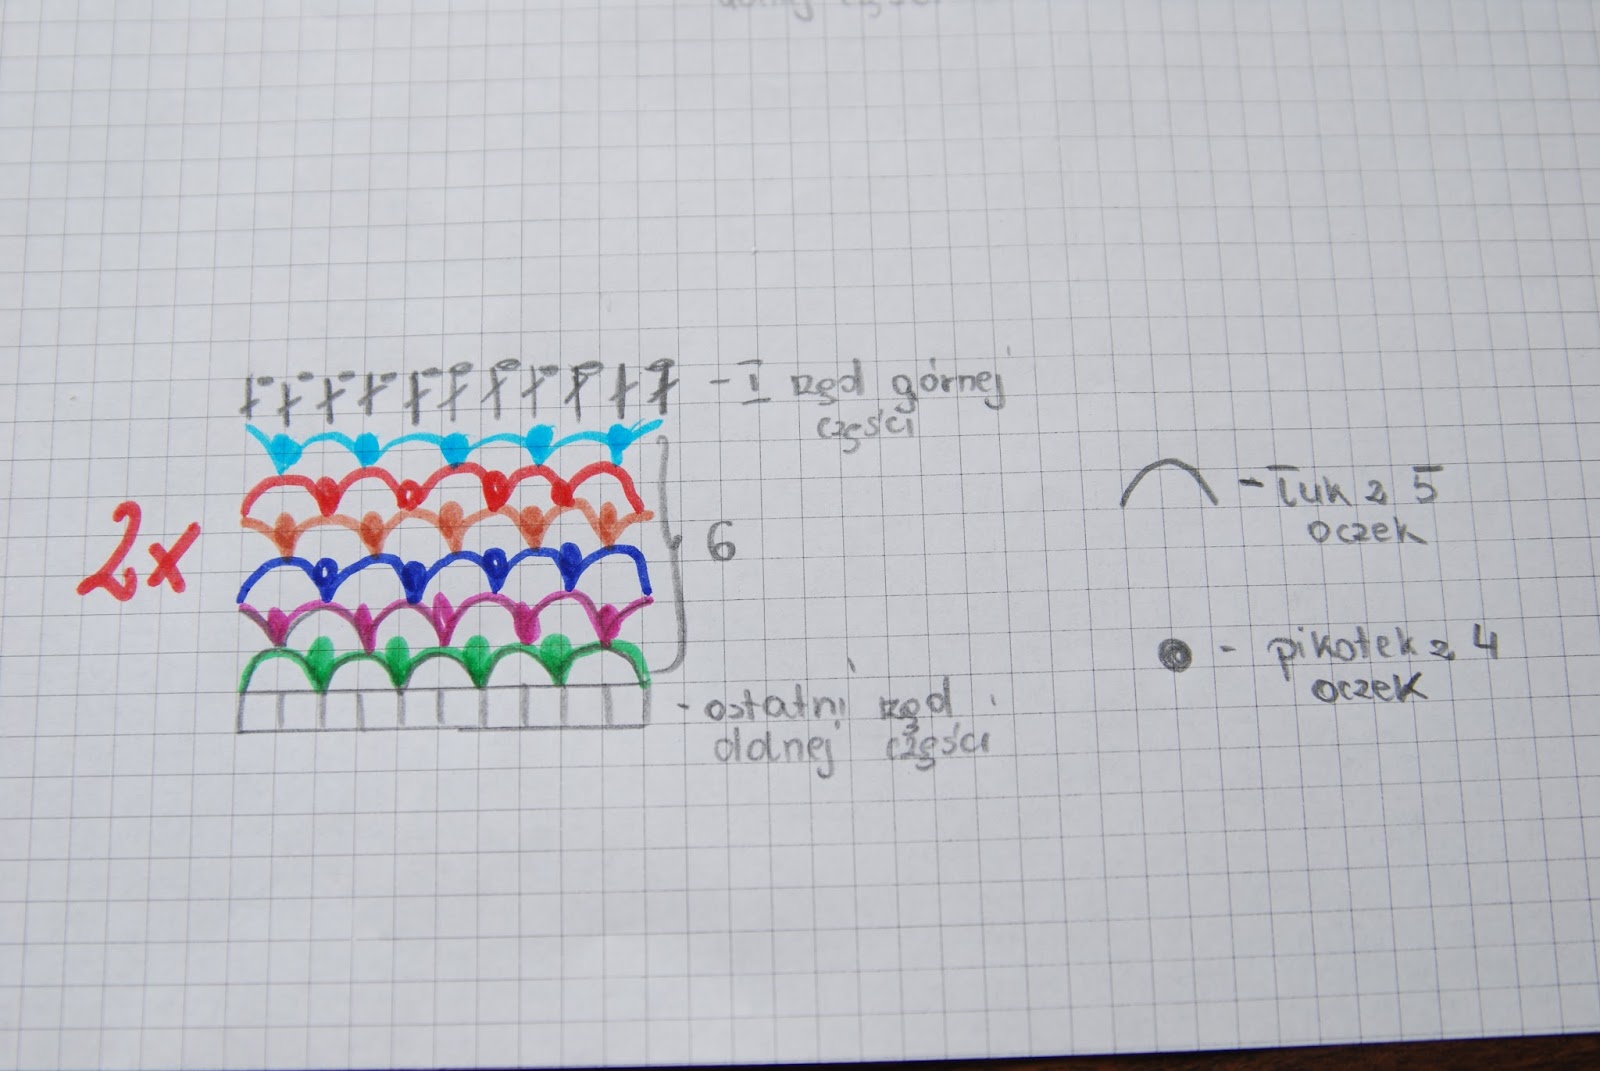 - I rząd górnej
części
2x
6
- łuk z 5
oczek
- pikotek z 4
oczek
- ostatni rząd
dolnej części